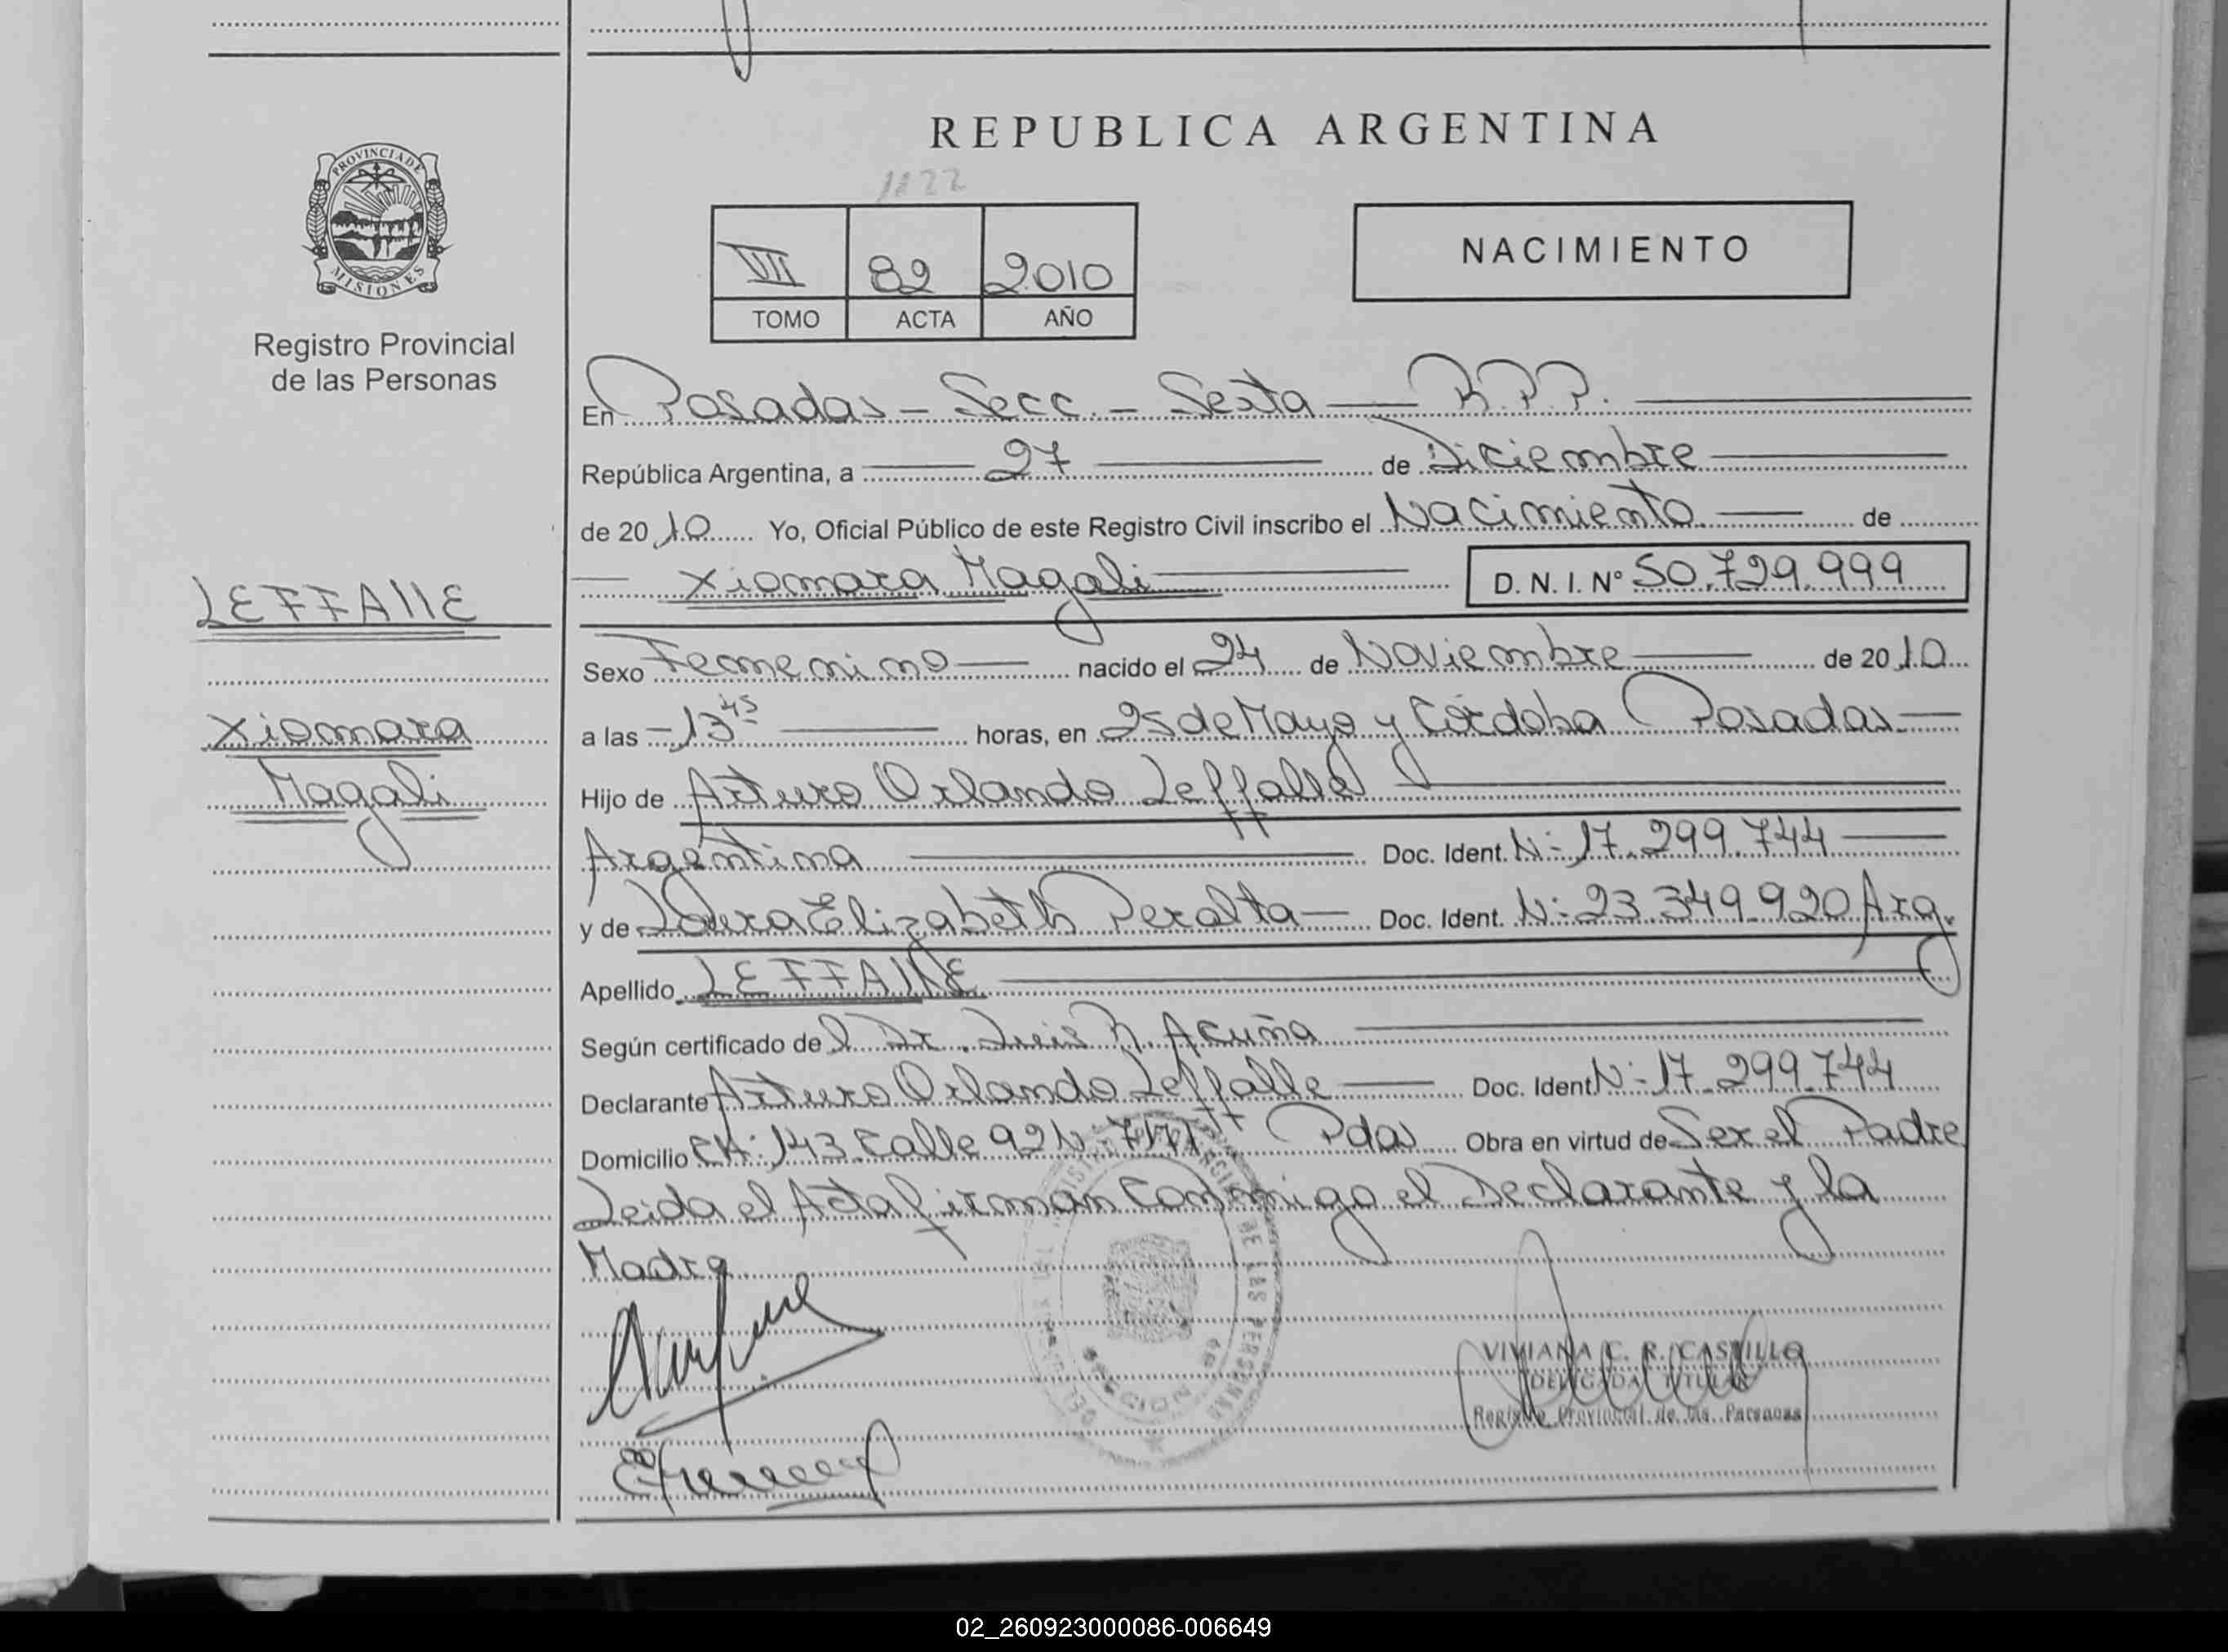 REPUBLICA ARGENTINA
PROVINCIA DE
MISIONES
Registro Provincial
de las Personas
1122
VII 82 2010
TOMO ACTA AÑO
NACIMIENTO
En Posadas - Secc. - Sexta — R.P.P.
República Argentina, a 27 de Diciembre
de 2010 Yo, Oficial Público de este Registro Civil inscribo el Nacimiento de
Xiomara Magali D. N. I. N° 50.729.999
LEFFAllE
Xiomara
Magali
Sexo Femenino nacido el 24 de Noviembre de 2010
a las - 13 45 horas, en 25 de Mayo y Córdoba Posadas
Hijo de Arturo Orlando Leffalle
Argentina Doc. Ident. N: 17.299.744
y de Laura Elizabeth Peralta Doc. Ident. N: 23.349.920 Arg.
Apellido LEFFAllE
Según certificado del Dr. Luis R. Acuña
Declarante Arturo Orlando Leffalle Doc. Ident. N: 17.299.744
Domicilio CH: 143 Calle 92 N: 7171 Pdas Obra en virtud de Ser el Padre
Leida el Acta firman Conmigo el Declarante y la
Madre
VIVIANA C. R. CASTILLO
DELEGADA TITULAR
Registro Provincial de las Personas
02_260923000086-006649